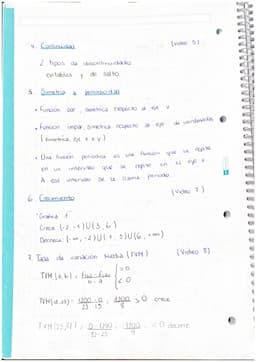 4. Continuidad (Video 5)
2 tipos de discontinuidades
evitables y de salto.
5. Simetría y periodicidad
• Función par, simétrica respecto al eje y
• Función impar, simétrica respecto al eje de coordenadas
(simétrica, eje x e y)
• Una función periodica es una función que se repite
en un intervalo que se repite en el eje x
A ese intervalo se le llama periodo.
6. Crecimiento (Video 7)
"Gráfica 1"
Crece (-2, -1) U (3, 6)
Decrece (-∞, -2) U (-1, 3) U (6, +∞)
7. Tasa de variación Media (TVM) (Video 8)
TVM (a, b) = f(b) - f(a) / b - a { > 0
< 0
> 0 crece
< 0 decrece